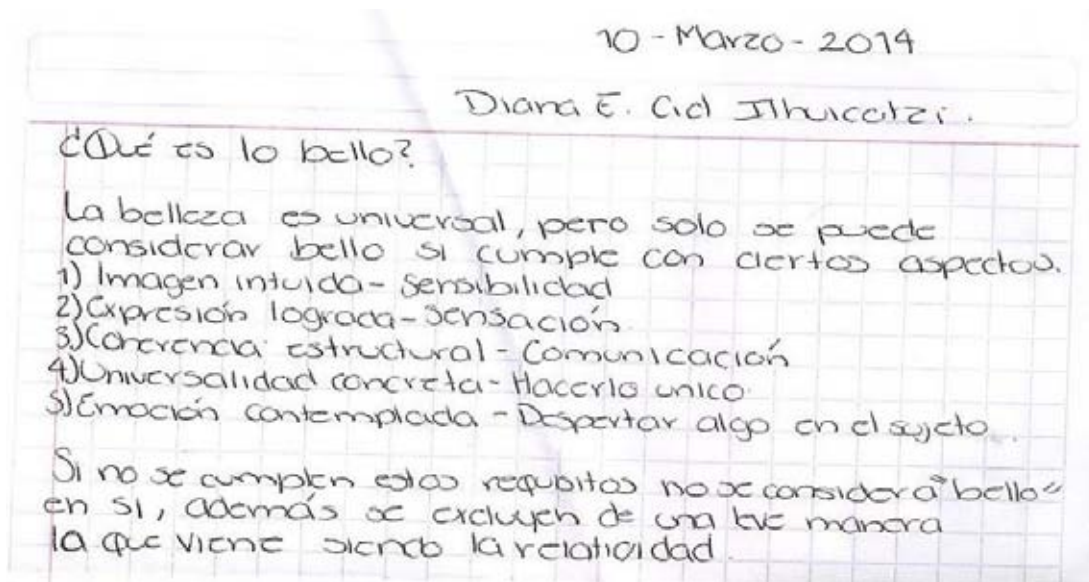 10 - Marzo - 2014
Diana E. Cid Ilhuicatzi.
¿Qué es lo bello?
La belleza es universal, pero solo se puede
considerar bello si cumple con ciertos aspectos.
1) Imagen intuida - Sensibilidad
2) Expresión lograda - Sensación.
3) Coherencia estructural - Comunicación
4) Universalidad concreta - Hacerlo unico.
5) Emoción contemplada - Despertar algo en el sujeto.
Si no se cumplen estos requisitos no se considera "bello"
en si, además se excluyen de una leve manera
la que viene siendo la relatividad.